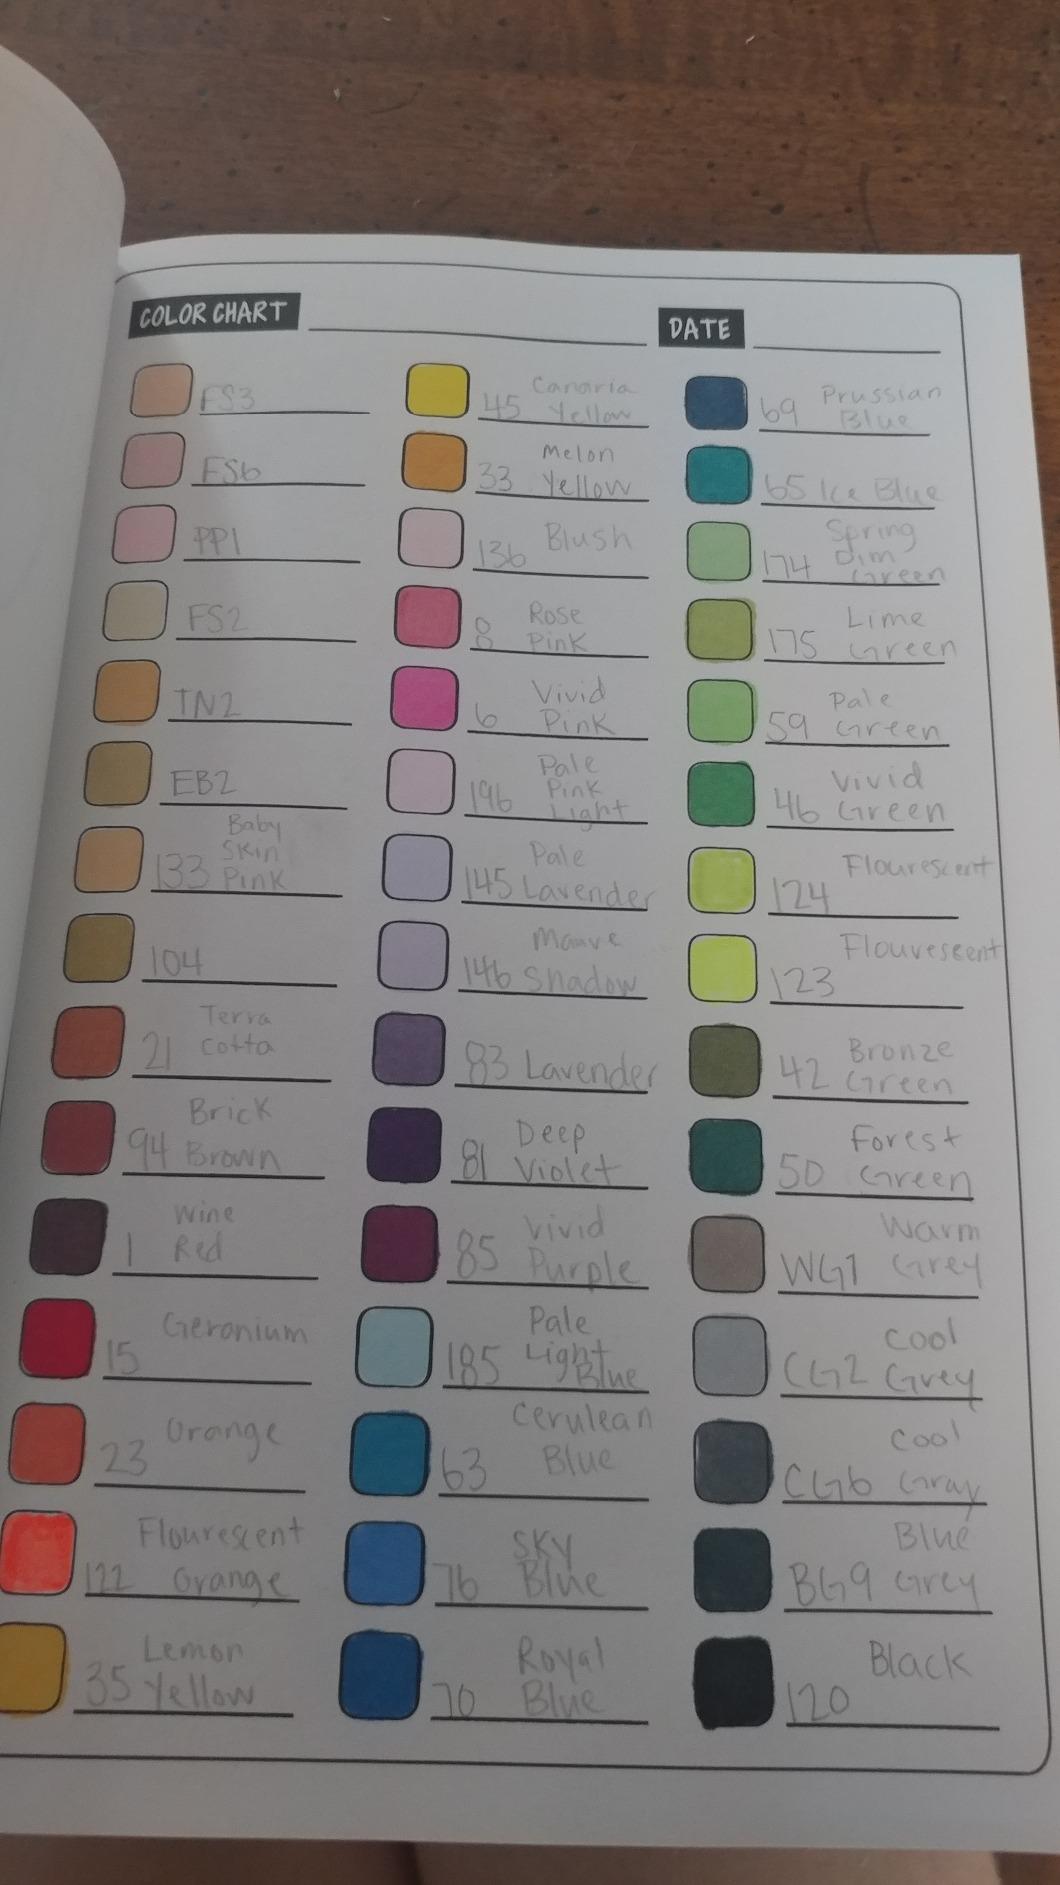 COLOR CHART
DATE
FS3
FS6
PP1
FS2
TN2
EB2
Baby
Skin
133 Pink
104
Terra
21 Cotta
Brick
94 Brown
Wine
1 Red
Geronium
15
Orange
23
Flourescent
122 Orange
Lemon
35 Yellow
Canaria
45 Yellow
Melon
33 Yellow
136 Blush
Rose
8 Pink
Vivid
6 Pink
Pale
196 Pink
Light
Pale
145 Lavender
Mauve
146 Shadow
83 Lavender
Deep
81 Violet
Vivid
85 Purple
Pale
185 Light
Blue
Cerulean
63 Blue
Sky
76 Blue
Royal
70 Blue
Prussian
69 Blue
65 Ice Blue
Spring
174 Dim
Green
Lime
175 Green
Pale
59 Green
Vivid
46 Green
Flourescent
124
Flourescent
123
Bronze
42 Green
Forest
50 Green
Warm
WG1 Grey
Cool
CG2 Grey
Cool
CG6 Gray
Blue
BG9 Grey
Black
120